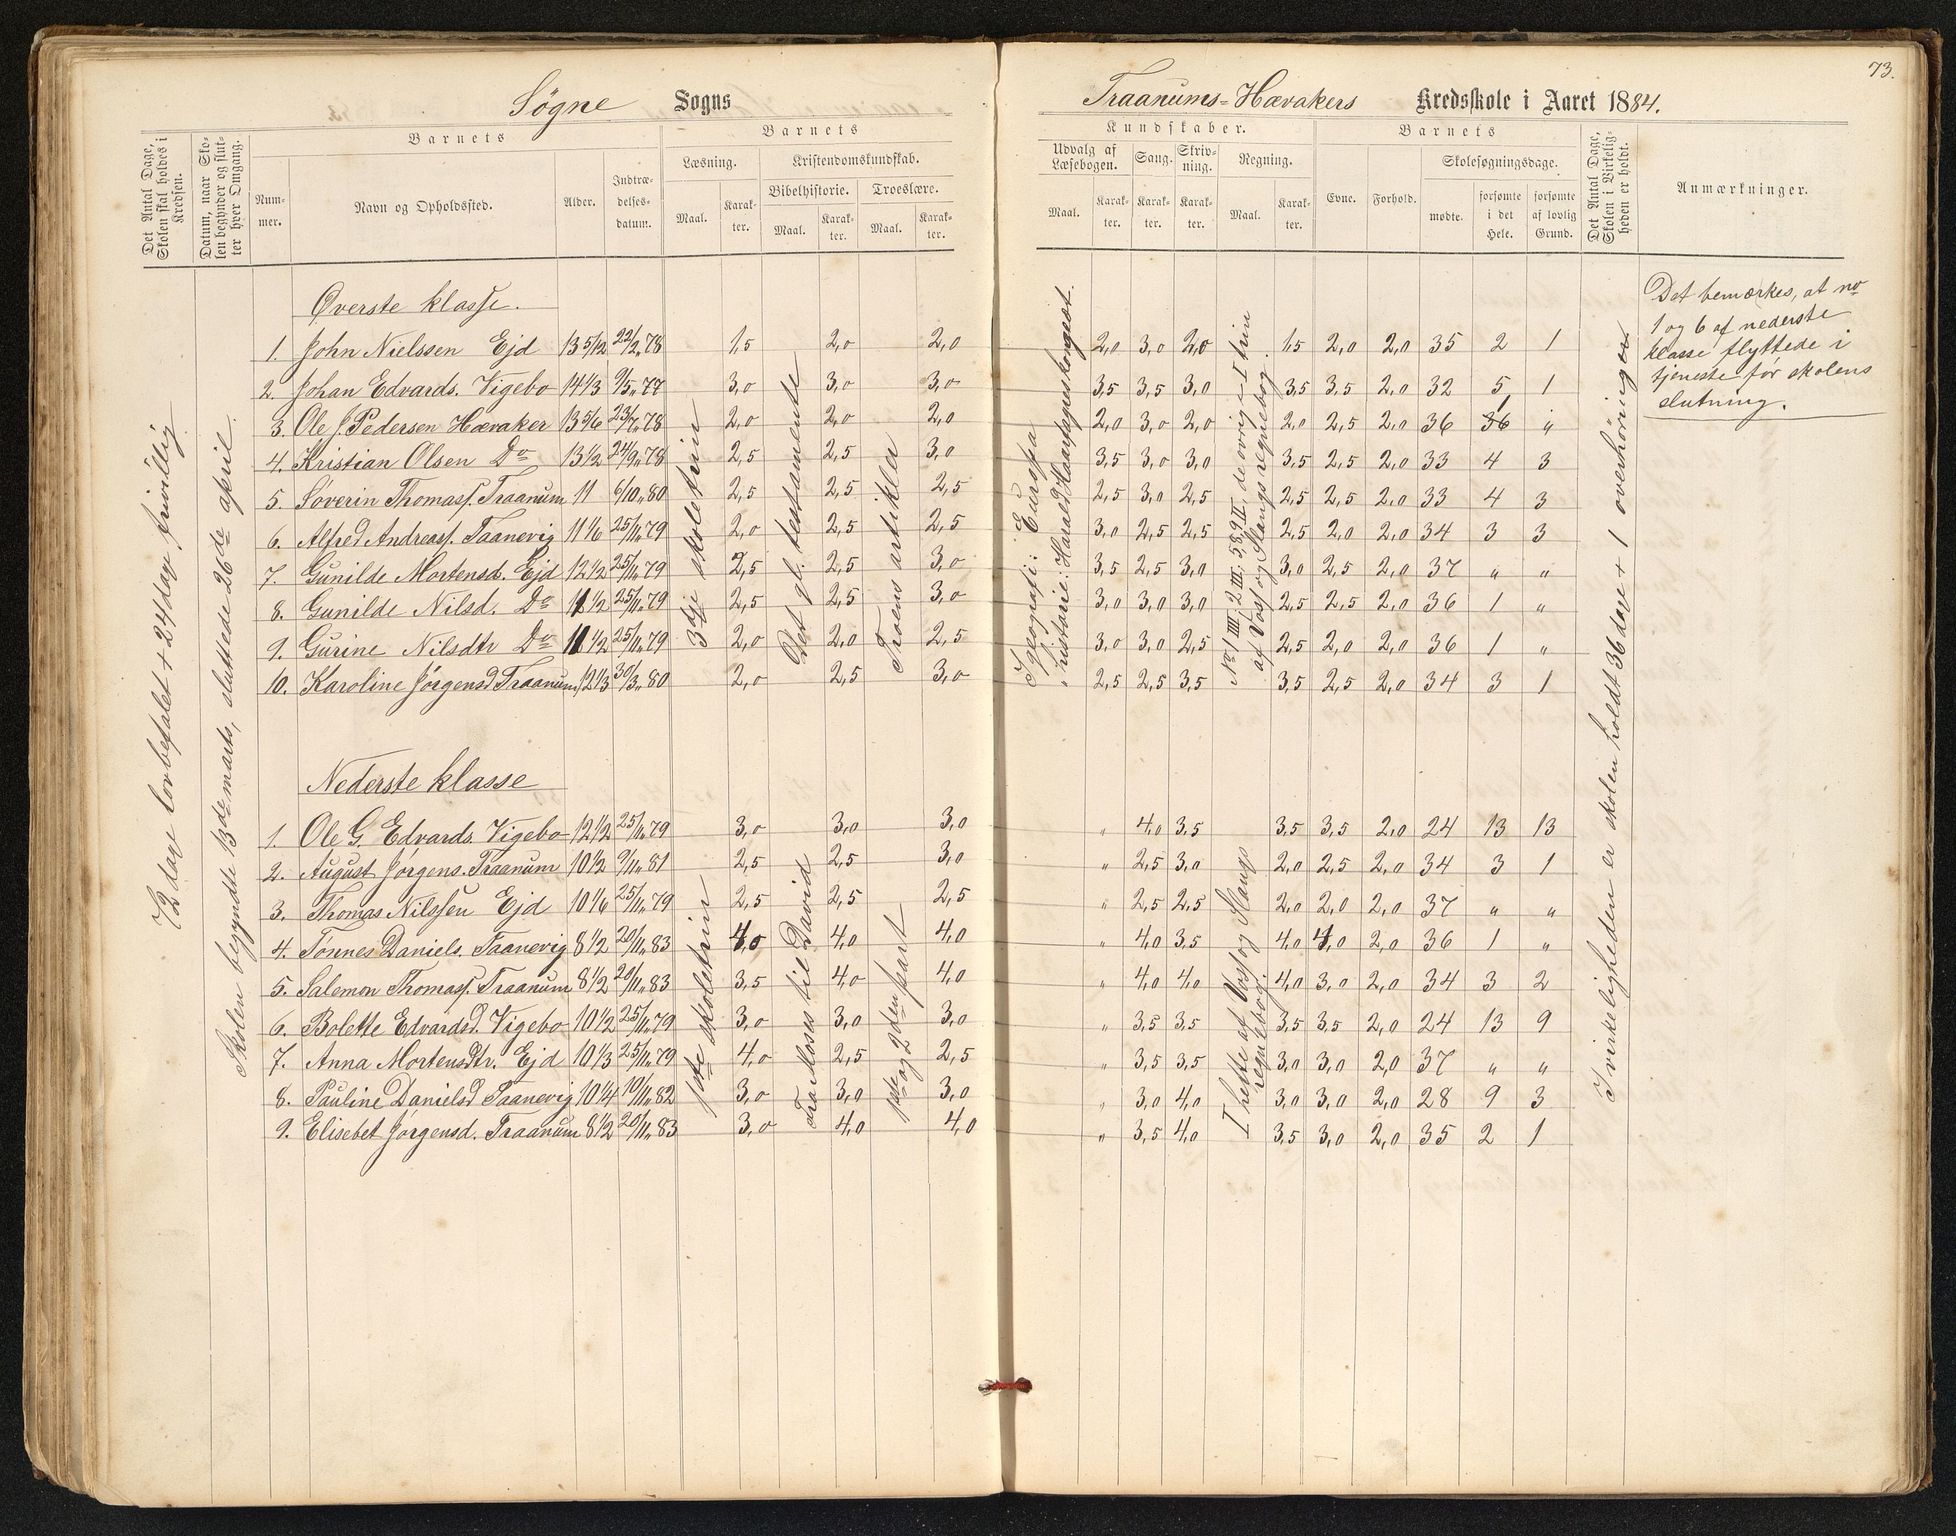 73.
Søgne Sogns Traanums-Hævakers Kredsskole i Aaret 1884.
Det Antal Dage, Skolen skal holdes i Kredsen.
Datum, naar Skolen begynder og slutter hver Omgang.
Barnets
Nummer.
Navn og Opholdssted.
Alder.
Indtrædelsesdatum.
Barnets
Læsning.
Maal.
Karakter.
Kristendomskundskab.
Bibelhistorie.
Maal.
Karakter.
Troeslære.
Maal.
Karakter.
Kundskaber.
Udvalg af Læsebogen.
Maal.
Karakter.
Sang.
Karakter.
Skrivning.
Karakter.
Regning.
Maal.
Karakter.
Barnets
Evne.
Forhold.
Skolesøgningsdage.
mødte.
forsømte i det Hele.
forsømte af lovlig Grund.
Det Antal Dage, Skolen i Virkeligheden er holdt.
Anmærkninger.
72 dage lovbefalet + 24 dage frivillig
Skolen begyndte 13de marts, sluttede 26de april.
Øverste klasse.
1. John Nielssen Ejd 13 5/12 22/2 78 1,5 2,0 2,0 2,0 3,0 2,0 1,5 2,0 2,0 35 2 1
2. Johan Edvards. Vigebo 14 1/3 9/5 77 3,0 3,0 3,0 3,5 3,5 3,0 3,5 3,5 2,0 32 5 1
3. Ole J. Pedersen Hævaker 13 5/6 23/7 78 2,0 2,0 2,0 2,0 3,0 2,0 2,0 2,5 2,0 36 1 "
4. Kristian Olsen Do 13 1/2 24/9 78 2,5 2,5 3,0 3,5 3,0 3,0 3,5 2,5 2,0 33 4 3
5. Søverin Thomass. Traanum 11 6/10 80 2,5 2,5 2,5 2,5 3,0 2,5 2,5 2,5 2,0 33 4 3
6. Alfred Andreass. Taanevig 11 1/6 25/11 79 2,0 2,5 2,5 3,0 2,5 2,5 2,5 2,0 2,0 34 3 3
7. Gunilde Mortensd. Ejd 12 1/2 25/11 79 2,5 2,5 3,0 3,5 2,5 3,0 3,0 2,5 2,0 37 " "
8. Gunilde Nilsd. Do 11 1/2 25/11 79 2,5 2,5 3,0 3,0 3,0 3,0 2,5 2,5 2,0 36 1 "
9. Gurine Nilsdtr Do 11 1/2 25/11 79 2,0 2,0 2,5 3,0 3,0 2,5 2,5 2,0 2,0 36 1 "
10. Karoline Jørgensd Traanum 12 1/3 30/3 80 2,0 2,5 3,0 2,5 2,5 3,5 3,5 2,5 2,0 34 3 1
3dje skoletrin
Det gl. testamente
Troens artikler
I geografi: Europa
" historie: Harald Haarfagres kongeæt.
No 1 IIII, 2 III, 5,8,9 II, de øvrige I trin
af Vos og Slangs regnebog.
Nederste klasse
1. Ole G. Edvards. Vigebo 12 1/2 25/11 79 3,0 3,0 3,0 " 4,0 3,5 3,5 3,5 2,0 24 13 13
2. August Jørgens. Traanum 10 1/2 9/11 81 2,5 2,5 3,0 " 2,5 3,0 2,0 2,5 2,0 34 3 1
3. Thomas Nilssen Ejd 10 1/6 25/11 79 2,5 2,5 2,5 " 2,5 2,5 2,0 2,0 2,0 37 " "
4. Tønnes Daniels. Taanevig 8 1/2 20/11 83 4,0 4,0 4,0 " 4,0 3,5 4,0 4,0 2,0 36 1 "
5. Salemon Thomass. Traanum 8 1/2 20/11 83 3,5 4,0 4,0 " 4,0 4,0 4,0 3,0 2,0 34 3 2
6. Bolette Edvardsd. Vigebo 10 1/2 25/11 79 3,0 3,0 3,0 " 3,5 3,5 3,5 3,5 2,0 24 13 9
7. Anna Mortensdtr. Ejd 10 1/3 25/11 79 4,0 2,5 2,5 " 3,5 3,5 3,0 3,0 2,0 37 " "
8. Pauline Danielsd Taanevig 10 1/4 10/11 82 3,0 3,0 3,0 " 3,0 4,0 3,0 3,0 2,0 28 9 3
9. Elisebet Jørgensd. Traanum 8 1/2 20/11 83 3,0 4,0 4,0 " 3,5 4,0 3,5 3,0 2,0 35 2 1
1ste skoletrin
Fra Moses til David
1ste og 2den part
I hefte af Vos og Slangs
regnebog.
I virkeligheden er skolen holdt 36 dage + 1 overhøring
Det bemærkes, at no
1 og 6 af nederste
klasse flyttede i
tjeneste før skolens
slutning.